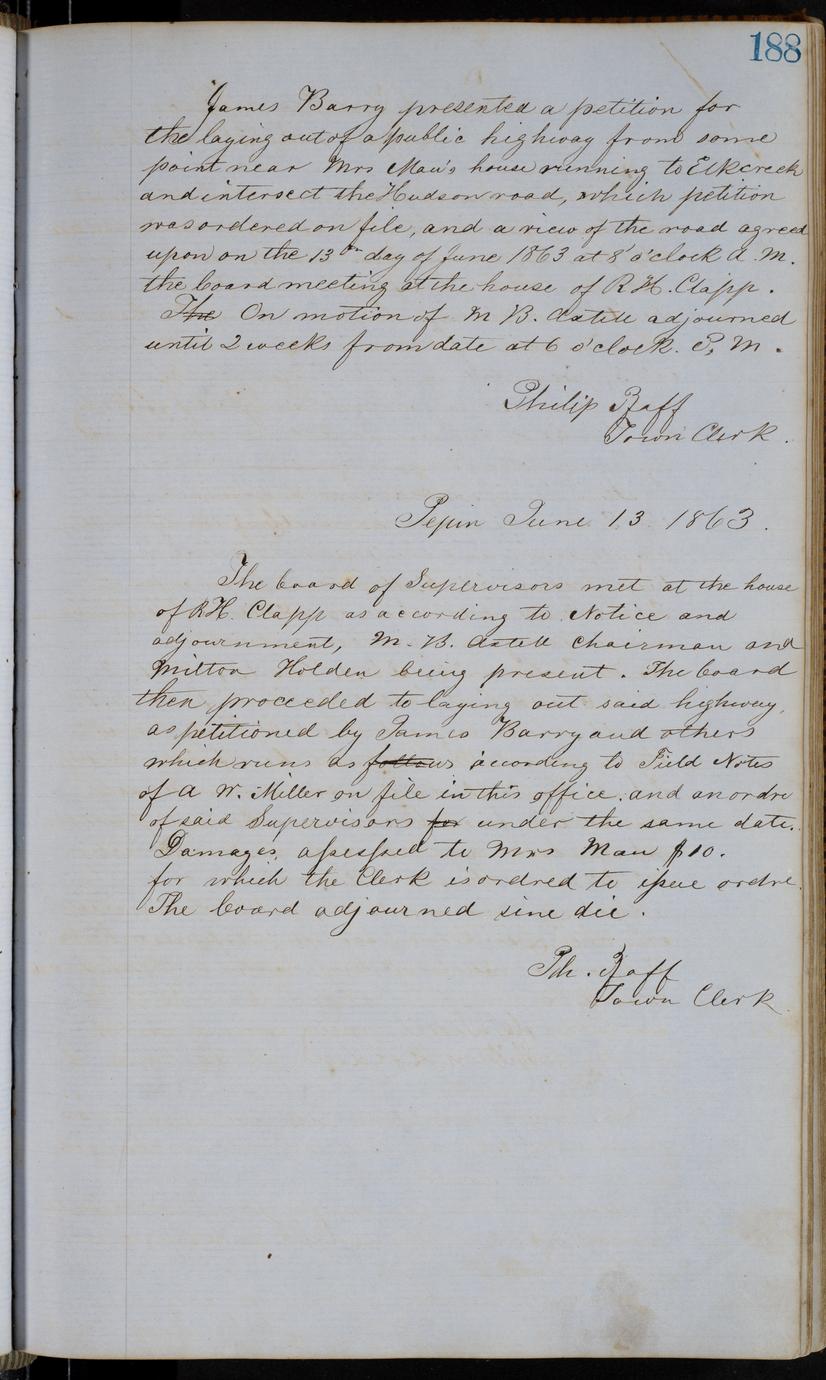 188
James Barry presented a petition for
the laying out of a public highway from some
point near Mrs Mau's house running to Elkcreek
and intersect the Hudson road, which petition
was ordered on file, and a view of the road agreed
upon on the 13th day of June 1863 at 8 o'clock A. M.
the board meeting at the house of R H. Clapp.
The On motion of M B. Axtell adjourned
until 2 weeks from date at 6 o'clock. P, M.
Philip Raff
Town Clerk.
Pepin June 13 1863.
The board of Supervisors met at the house
of R H. Clapp as according to Notice and
adjournment, M. B. Axtell Chairman and
Milton Holden being present. The board
then proceeded to laying out said highway,
as petitioned by James Barry and others
which runs as follows according to Field Notes
of A W. Miller on file in this office. and an ordre
of said Supervisors for under the same date.
Damages, assessed to Mrs Mau $10.
for which the Clerk is ordred to issue ordre.
The board adjourned sine die.
Ph. Raff
Town Clerk